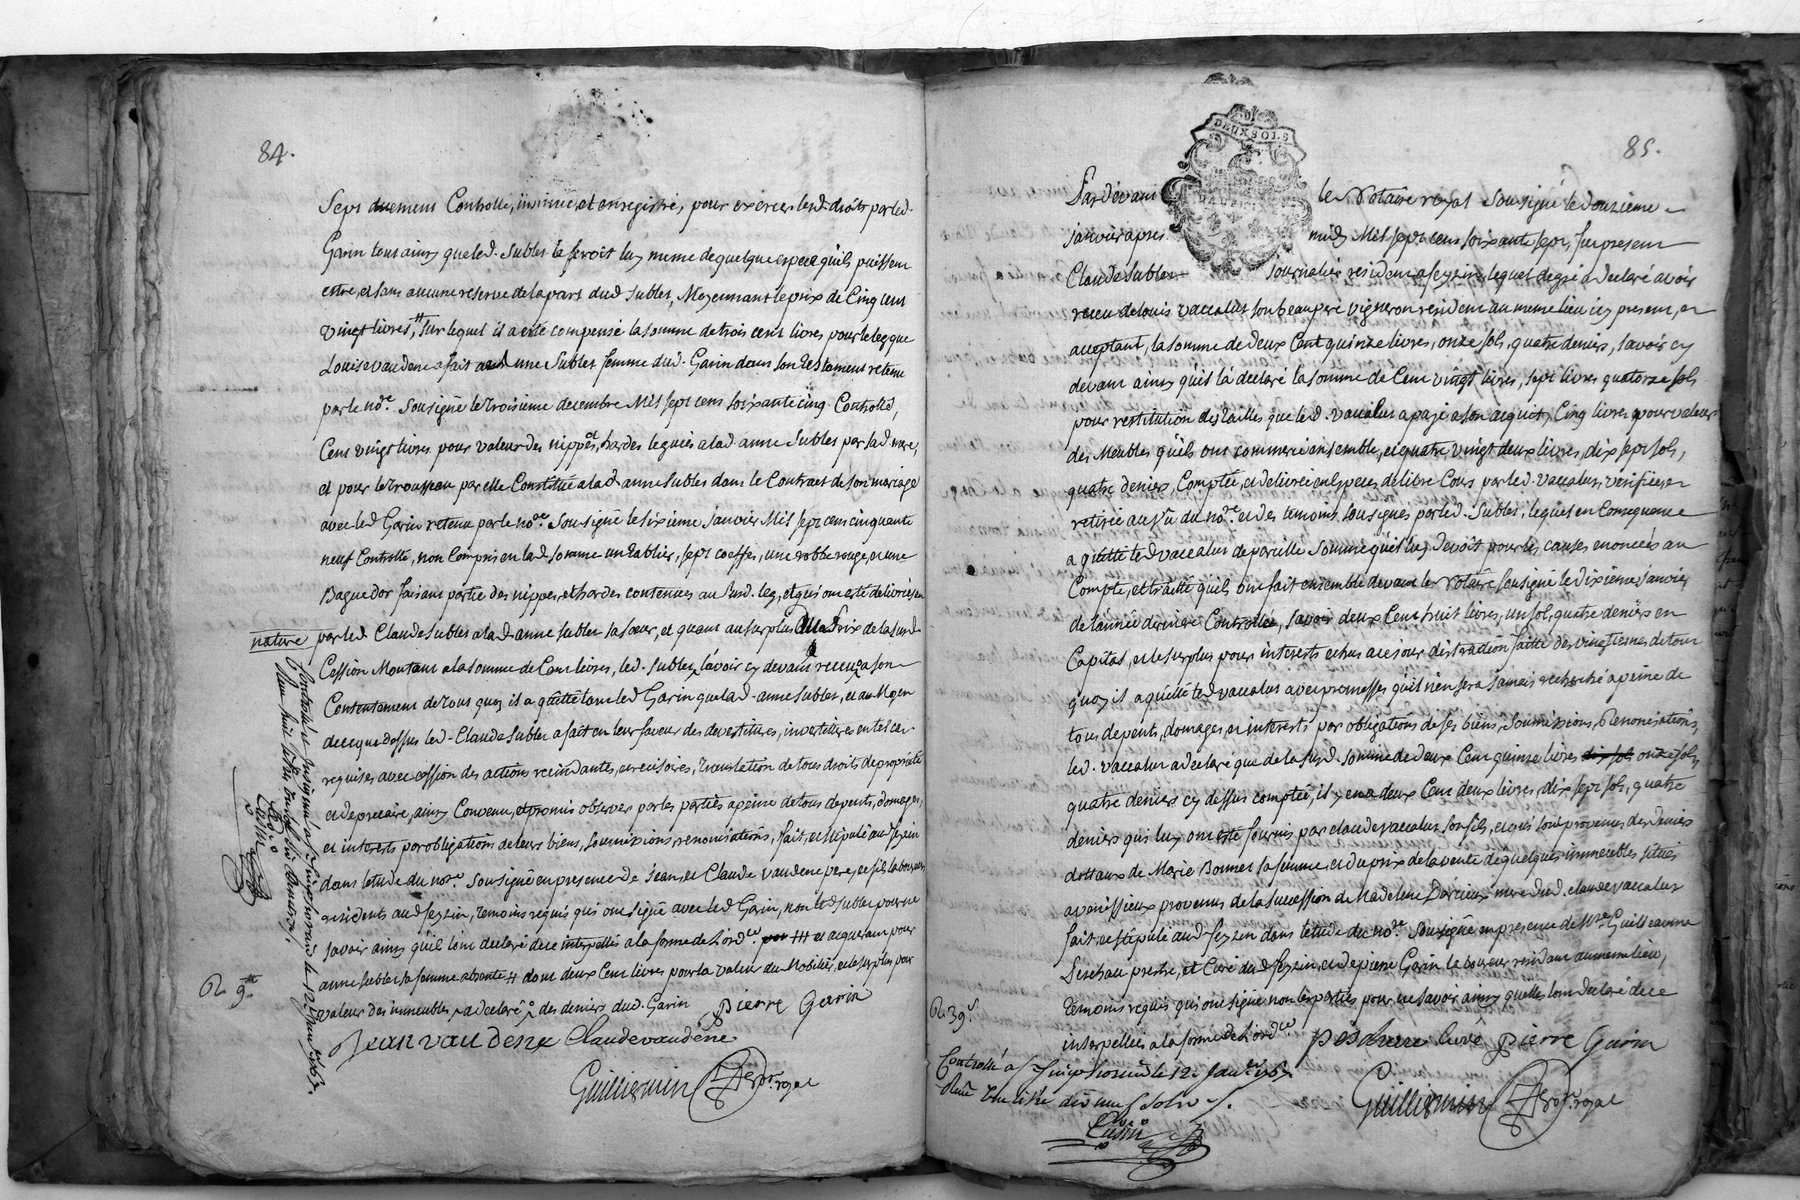 84.
Sept duement Controllé, insinué, et enregistré, pour exercer lesd. droits par led.
Garin tout ainsy que led. Sublet le feroit luy meme de quelque espece qu'ils puissent
estre, et sans aucune reserve de la part dud. Sublet, Moyennant le prix de Cinq cent
vingt livres, sur lequel il a eté compensé la somme de trois cent livres pour le leg que
Louise vaudene a fait a anne Sublet femme dud. Garin dans son testament retenu
par le nore. Sousigné le troisieme decembre Mil sept cent soixante cinq Controllé,
Cent vingt livres pour valeur des nippes et hardes leguées a lad. anne Sublet par sad. mere,
et pour le trousseau par elle Constitué a lad. anne Sublet dans le Contract de son mariage
avec led. Garin retenu par le nore. Sousigné le sixieme janvier Mil sept cent cinquante
neuf Controllé, non Compris en lad. somme un tablier, sept coeffes, une robbe rouge, et une
Bague d'or faisant partie des nippes, et hardes contenues au susd. leg, et qui ont eté delivrées en
nature par led. Claude Sublet a lad. anne Sublet sa soeur, et quant au surplus du prix de la susd.
Cession Montant a la somme de Cent livres, led. Sublet l'avoir cy devant receue a son
Contentement de tout quoy il a quitté tant led. Garin que lad. anne Sublet, et au Moyen
de ce que dessus led. Claude Sublet a fait en leur faveur des devestitures, investitures en tel cas
requises avec cession des actions rescindantes, et rescisoires, translation de tous droits de proprieté
et de precaire, ainsy Convenu, et promis observer par les parties a peine de tous depents, domages,
et interests par obligations de leurs biens, soumissions, renonciations, fait, et stipulé aud. feyzin
dans letude du nore. Sousigné en presence de Jean, et Claude vaudene pere, et fils laboureurs
residents aud. feyzin, temoins requis qui ont signé avec led. Garin, non led. Sublet pour ne
savoir ainsy qu'il l'ont declaré de ce interpellé a la forme de Lordce. et acquerant pour
anne Sublet sa femme absente # dont deux Cent livres pour la valeur du Mobilier, et le surplus pour
valeur des immeubles, a declaré, des deniers dud. Garin Pierre Garin
Jean vaudene Claude vaudene
Guilliermin nore. royal
R 9
85.
DEUX SOLS
DAUPHINE
Pardevant le Notaire royal Sousigné le douzieme
janvier apres midy Mil sept cent soixante sept, fut present
Claude Sublet journalier resident a feyzin, lequel de gré a declaré avoir
receu de louis vaccalut son beaupere vigneron resident au meme lieu icy present, et
acceptant, la somme de deux Cent quinze livres, onze sols, quatre deniers, savoir cy
devant ainsy qu'il l'a declaré la somme de Cent vingt livres, sept livres quatorze sols
pour restitution des tailles que led. vaccalut a payé a son acquit, Cinq livres pour valeur
des Meubles qu'ils ont commerce ensemble, et quatre vingt deux livres, dix sept sols,
quatre deniers, Comptée, et delivrée en Especes de libre Cours par led. vaccalut, verifiée, et
retirée au vu du nore. et des temoins sousignés par led. Sublet, lequel en Consequence
a quitté led. vaccalut de pareille somme qu'il luy devoit pour les causes enoncées au
Compte, et traitté qu'ils ont fait ensemble devant le Notaire Sousigné le dixieme janvier
de l'année derniere Controllé, savoir deux Cent huit livres, un sol, quatre deniers en
Capital, et le surplus pour interests echus a ce jour distraction faitte des vingtiemes de tout
quoy il a quitté led. vaccalut avec promesses qu'il n'en sera jamais recherché a peine de
tous depents, domages, et interests par obligations de ses biens, soumissions, et renonciations,
led. vaccalut a declaré que de la susd. somme de deux Cent quinze livres onze sols,
quatre deniers cy dessus comptée, il y en a deux Cent deux livres, dix sept sols, quatre
deniers qui luy ont eté fournis par claude vaccalut son fils, et qui sont provenus des deniers
dottaux de Marie Bonnet sa femme, et du prix de la vente de quelques immeubles situés
a venissieux provenus de la succession de Madeleine Darcieux mere dud. claude vaccalut
fait, et stipulé aud. feyzin dans letude du nore. Sousigné en presence de Mre. Guilleaume
Peschau prestre, et Curé dud. feyzin, et de pierre Garin laboureur residant au meme lieu,
temoins requis qui ont signé non les parties pour ne savoir ainsy quelles l'ont declaré de ce
interpellées a la forme de Lordce. Peschau Curé Pierre Garin
Guilliermin nore. royal
R 39s.
Controllé a St Simphorien le 12 Janv. 1767